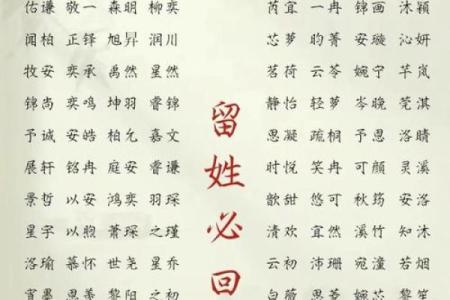 佑谦 敬一 森明 柳奕
闻柏 正铎 旭昇 润川
牧安 奕承 禹然 星然
锦尚 奕鸣 坤羽 睿锦
予诚 安皓 柏允 嘉文
展轩 铭冉 庭安 睿谦
景哲 以安 鸿奕 羽琛
星宇 以煦 萧琛 之瑾
洛瑜 慕怀 世尧 星乔
宥墨 思羲 黎阳
留姓必回
芮宜 一冉 锦画 沐颖
芯萝 昀菁 安璇 沁妍
茗荷 云苓 婉宁 芊岚
静怡 轻萝 岑晚 芫淇
思凝 疏桐 予恩 洛晴
时悦 笑冉 可颜 灵溪
歆甜 悠可 秋筠 安洛
清欢 宜然 溪竹 知沐
云初 沛珊 宛潼 若棠
白薇 思芮 婉芯 初